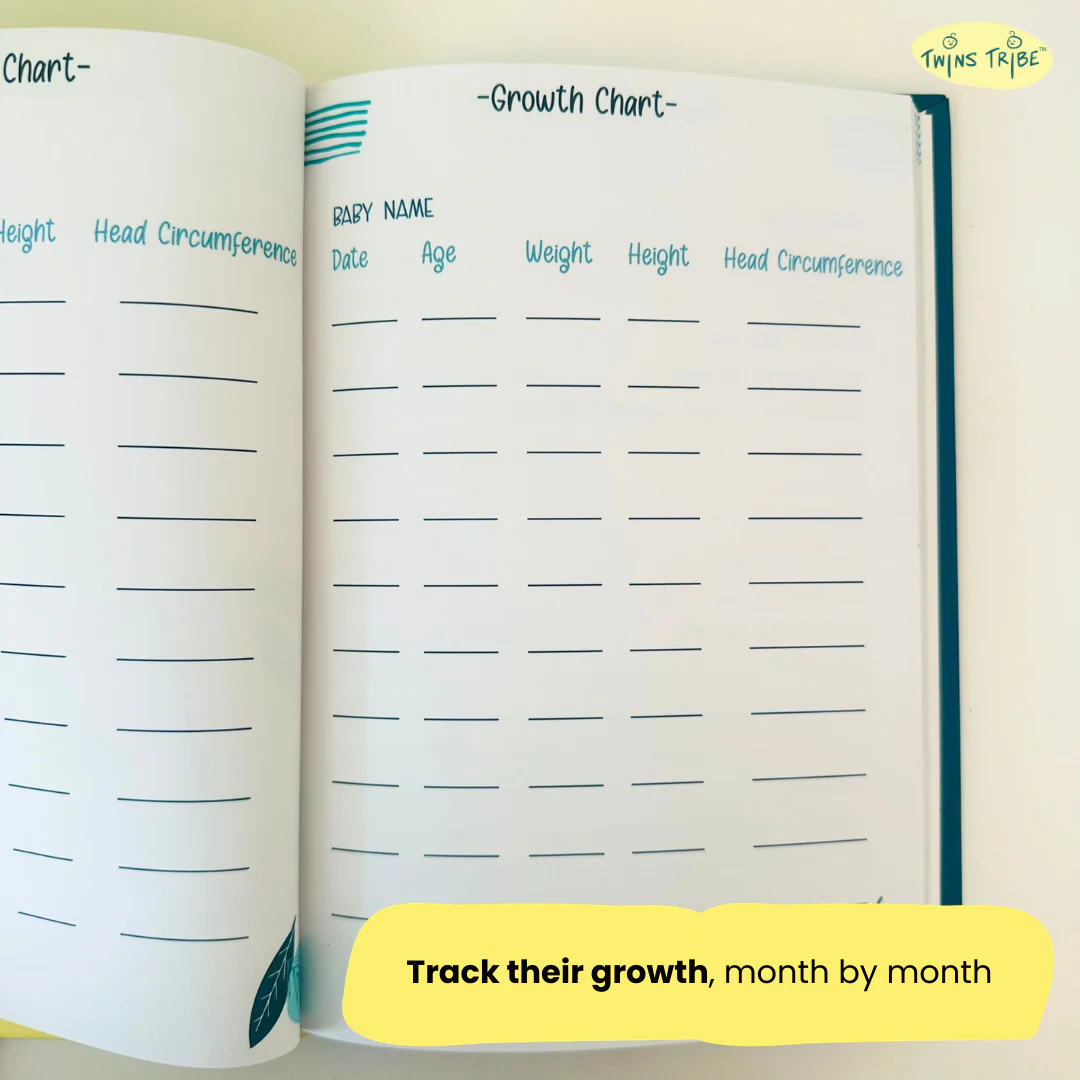 TWINS TRIBE™
Chart-
Height
Head Circumference
-Growth Chart-
BABY NAME
Date Age Weight Height Head Circumference
Track their growth, month by month